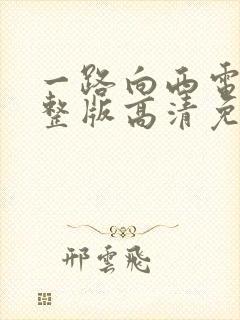 一路向西電
整版高清免
邢雲飛